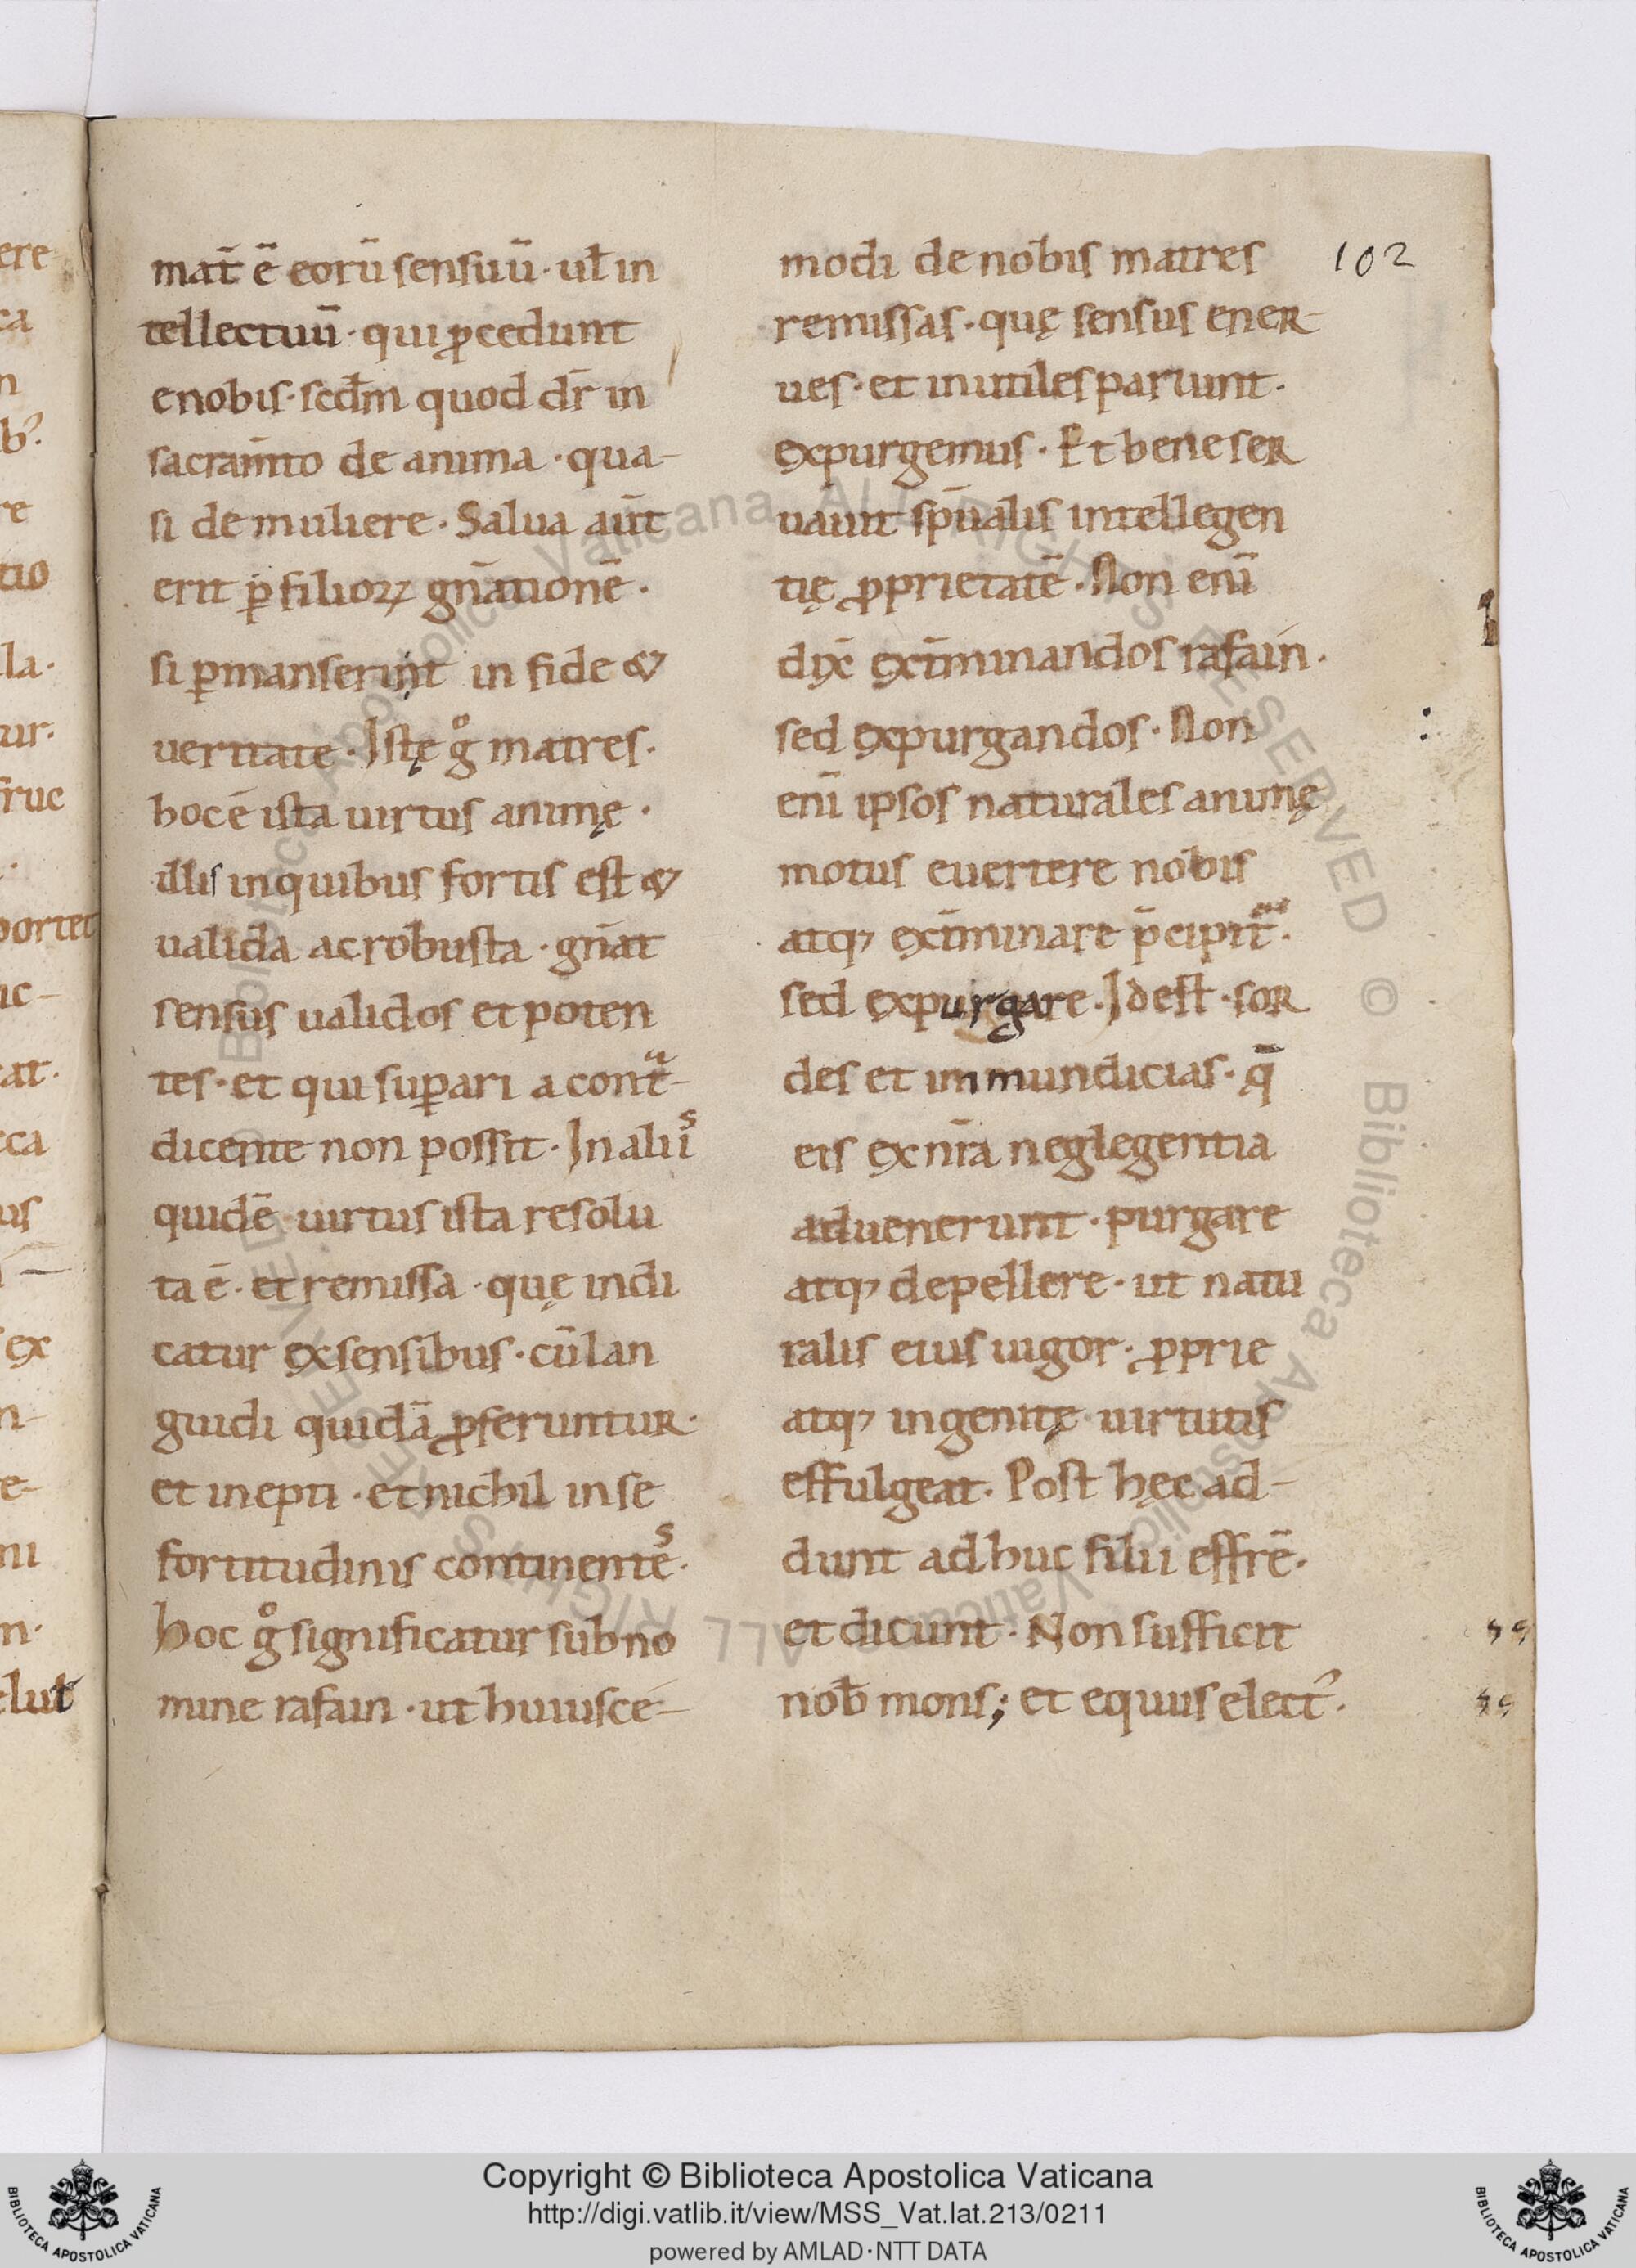 ere
ca
n
b᾽.
re
tio
la.
ur.
fruc
.
portet
uc-
at.
ca
us
ex
n-
e-
ni
n.
elut
102
mat̄ ē eorū sensuū · ul̄ in
tellectuū · qui ꝓcedunt
enobis · scd̄m quod dr̄ in
sacram̄to de anima · qua-
si de muliere · Salua aūt
erit p̄ filioꝝ gn̄ationē ·
si ꝑmanserint in fide &
ueritate · Istę gͦ matres ·
hoc ē ista uirtus animę ·
illis inquibus fortis est &
ualida ac robusta · gn̄at
sensus ualidos et poten
tes · et qui suꝑari a contᵃ-
dicente non possit · In aliiˢ
quidē uirtus ista resolu
ta ē · et remissa · quę indi
catur ex sensibus · cū lan
guidi quidā ꝓferuntur ·
et inepti · et nichil in se
fortitudinis continenteˢ ·
Hoc gͦ significatur sub no
mine rafain · ut huiusce-
modi de nobis matres
remissas · quę sensus ener-
ues · et inutiles pariunt ·
expurgemus · Et bene ser
uauit sp̄ualis intellegen
tię ꝓprietatē · Non enī
dix̄ ext̄minandos rafain ·
sed expurgandos · Non
enī ipsos naturales animę
motus euertere nobis
atq; ext̄minare p̄cipit᷑ ·
sed expurgare · Idest · sor
des et immundicias · q̄
eis ex nr̄a neglegentia
aduenerunt · purgare
atq; depellere · ut natu
ralis eius uigor · ꝓprie
atq; ingenitę uirtutis
effulgeat · Post hęc ad-
dunt adhuc filii effrē ·
et dicunt · Non sufficit
nob̄ mons; et equus elect᾽ ·
Copyright © Biblioteca Apostolica Vaticana
http://digi.vatlib.it/view/MSS_Vat.lat.213/0211
powered by AMLAD·NTT DATA
BIBLIOTECA APOSTOLICA VATICANA
BIBLIOTECA APOSTOLICA VATICANA
© Biblioteca Apostolica Vaticana ALL RIGHTS RESERVED © Biblioteca Apostolica Vaticana ALL RIGHTS RESERVED